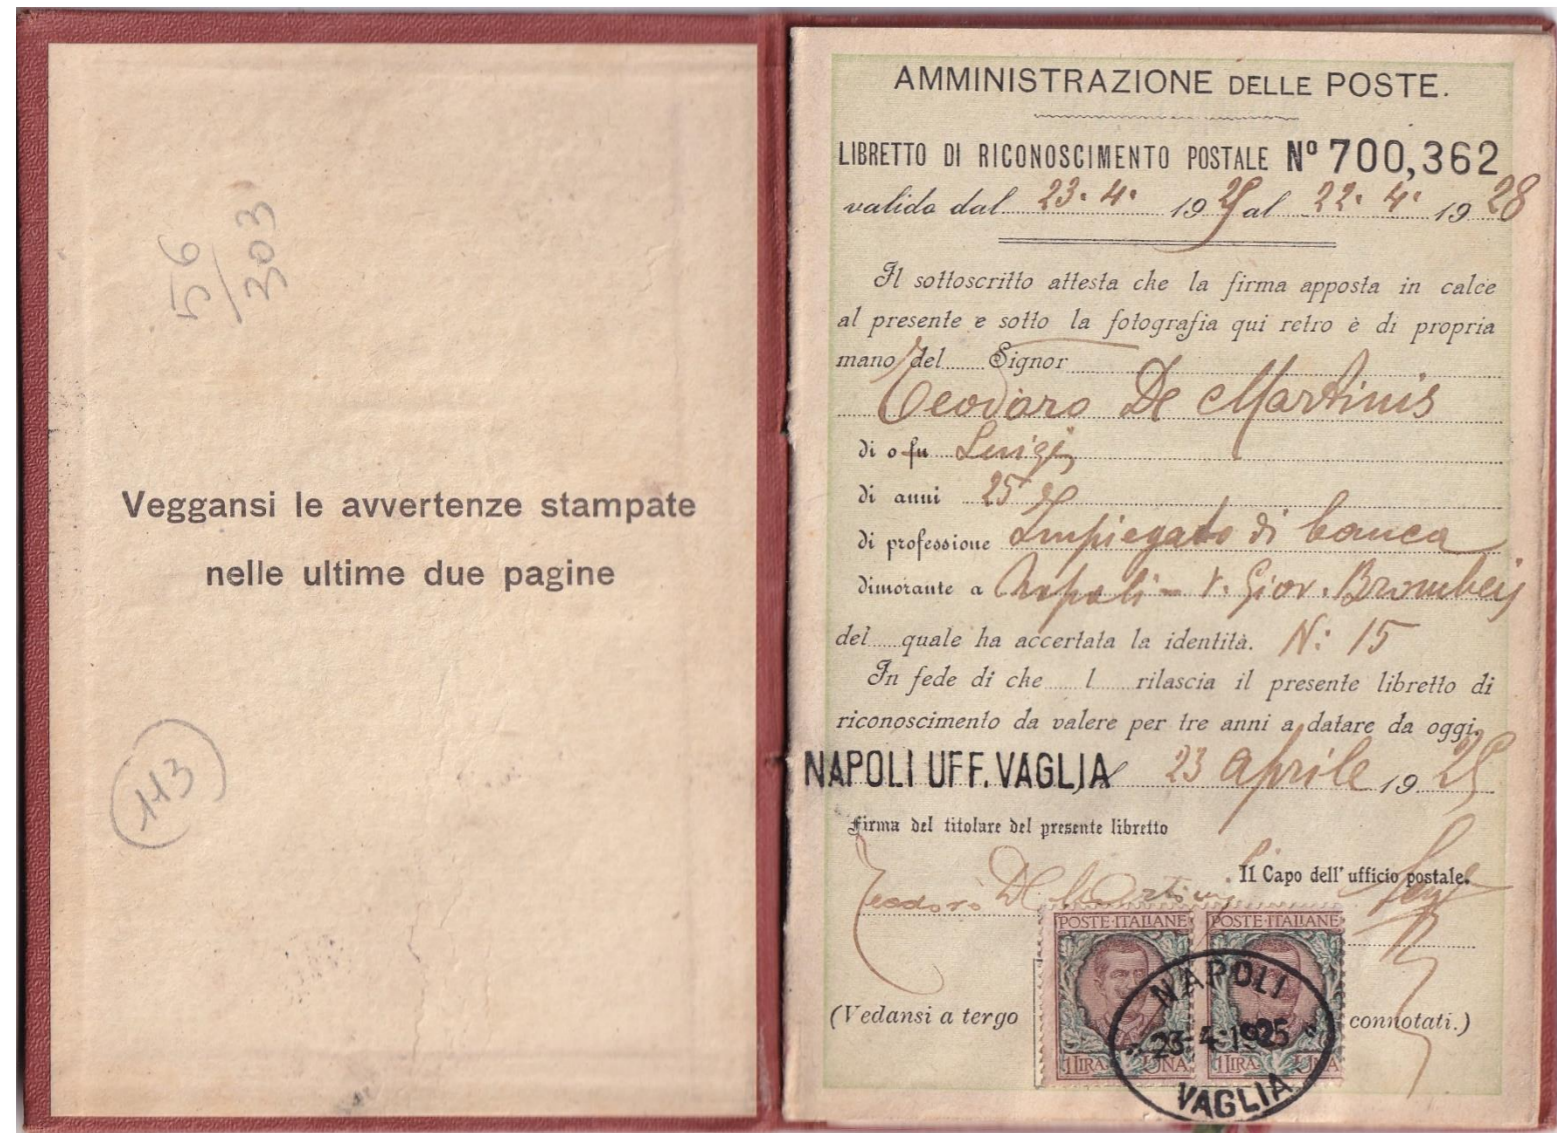 56/303
Veggansi le avvertenze stampate
nelle ultime due pagine
113
AMMINISTRAZIONE DELLE POSTE.
LIBRETTO DI RICONOSCIMENTO POSTALE Nº 700,362
valido dal 23. 4. 1925 al 22. 4. 1928
Il sottoscritto attesta che la firma apposta in calce
al presente e sotto la fotografia qui retro è di propria
mano del Signor
Teodoro De Martinis
di o fu Luigi
di anni 25
di professione Impiegato di banca
dimorante a Napoli - V. Giov. Brombeis
del quale ha accertata la identità. N: 15
In fede di che l rilascia il presente libretto di
riconoscimento da valere per tre anni a datare da oggi.
NAPOLI UFF. VAGLIA 23 Aprile 1925
Firma del titolare del presente libretto
Il Capo dell'ufficio postale.
Teodoro De Martinis
POSTE·ITALIANE POSTE·ITALIANE
NAPOLI
23·4·1925
1 LIRA UNA 1 LIRA UNA
VAGLIA
(Vedansi a tergo connotati.)